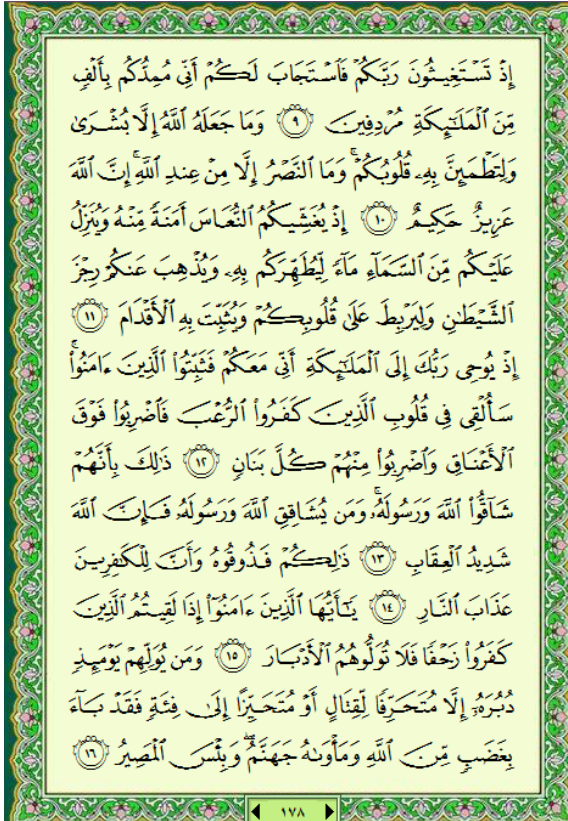 إِذْ تَسْتَغِيثُونَ رَبَّكُمْ فَٱسْتَجَابَ لَكُمْ أَنِّى مُمِدُّكُم بِأَلْفٍ
مِّنَ ٱلْمَلَٰٓئِكَةِ مُرْدِفِينَ ٩ وَمَا جَعَلَهُ ٱللَّهُ إِلَّا بُشْرَىٰ
وَلِتَطْمَئِنَّ بِهِۦ قُلُوبُكُمْ ۚ وَمَا ٱلنَّصْرُ إِلَّا مِنْ عِندِ ٱللَّهِ ۚ إِنَّ ٱللَّهَ
عَزِيزٌ حَكِيمٌ ١٠ إِذْ يُغَشِّيكُمُ ٱلنُّعَاسَ أَمَنَةً مِّنْهُ وَيُنَزِّلُ
عَلَيْكُم مِّنَ ٱلسَّمَآءِ مَآءً لِّيُطَهِّرَكُم بِهِۦ وَيُذْهِبَ عَنكُمْ رِجْزَ
ٱلشَّيْطَٰنِ وَلِيَرْبِطَ عَلَىٰ قُلُوبِكُمْ وَيُثَبِّتَ بِهِ ٱلْأَقْدَامَ ١١
إِذْ يُوحِى رَبُّكَ إِلَى ٱلْمَلَٰٓئِكَةِ أَنِّى مَعَكُمْ فَثَبِّتُوا۟ ٱلَّذِينَ ءَامَنُوا۟ ۚ
سَأُلْقِى فِى قُلُوبِ ٱلَّذِينَ كَفَرُوا۟ ٱلرُّعْبَ فَٱضْرِبُوا۟ فَوْقَ
ٱلْأَعْنَاقِ وَٱضْرِبُوا۟ مِنْهُمْ كُلَّ بَنَانٍ ١٢ ذَٰلِكَ بِأَنَّهُمْ
شَآقُّوا۟ ٱللَّهَ وَرَسُولَهُۥ ۚ وَمَن يُشَاقِقِ ٱللَّهَ وَرَسُولَهُۥ فَإِنَّ ٱللَّهَ
شَدِيدُ ٱلْعِقَابِ ١٣ ذَٰلِكُمْ فَذُوقُوهُ وَأَنَّ لِلْكَٰفِرِينَ
عَذَابَ ٱلنَّارِ ١٤ يَٰٓأَيُّهَا ٱلَّذِينَ ءَامَنُوٓا۟ إِذَا لَقِيتُمُ ٱلَّذِينَ
كَفَرُوا۟ زَحْفًا فَلَا تُوَلُّوهُمُ ٱلْأَدْبَارَ ١٥ وَمَن يُوَلِّهِمْ يَوْمَئِذٍ
دُبُرَهُۥٓ إِلَّا مُتَحَرِّفًا لِّقِتَالٍ أَوْ مُتَحَيِّزًا إِلَىٰ فِئَةٍ فَقَدْ بَآءَ
بِغَضَبٍ مِّنَ ٱللَّهِ وَمَأْوَىٰهُ جَهَنَّمُ ۖ وَبِئْسَ ٱلْمَصِيرُ ١٦
١٧٨